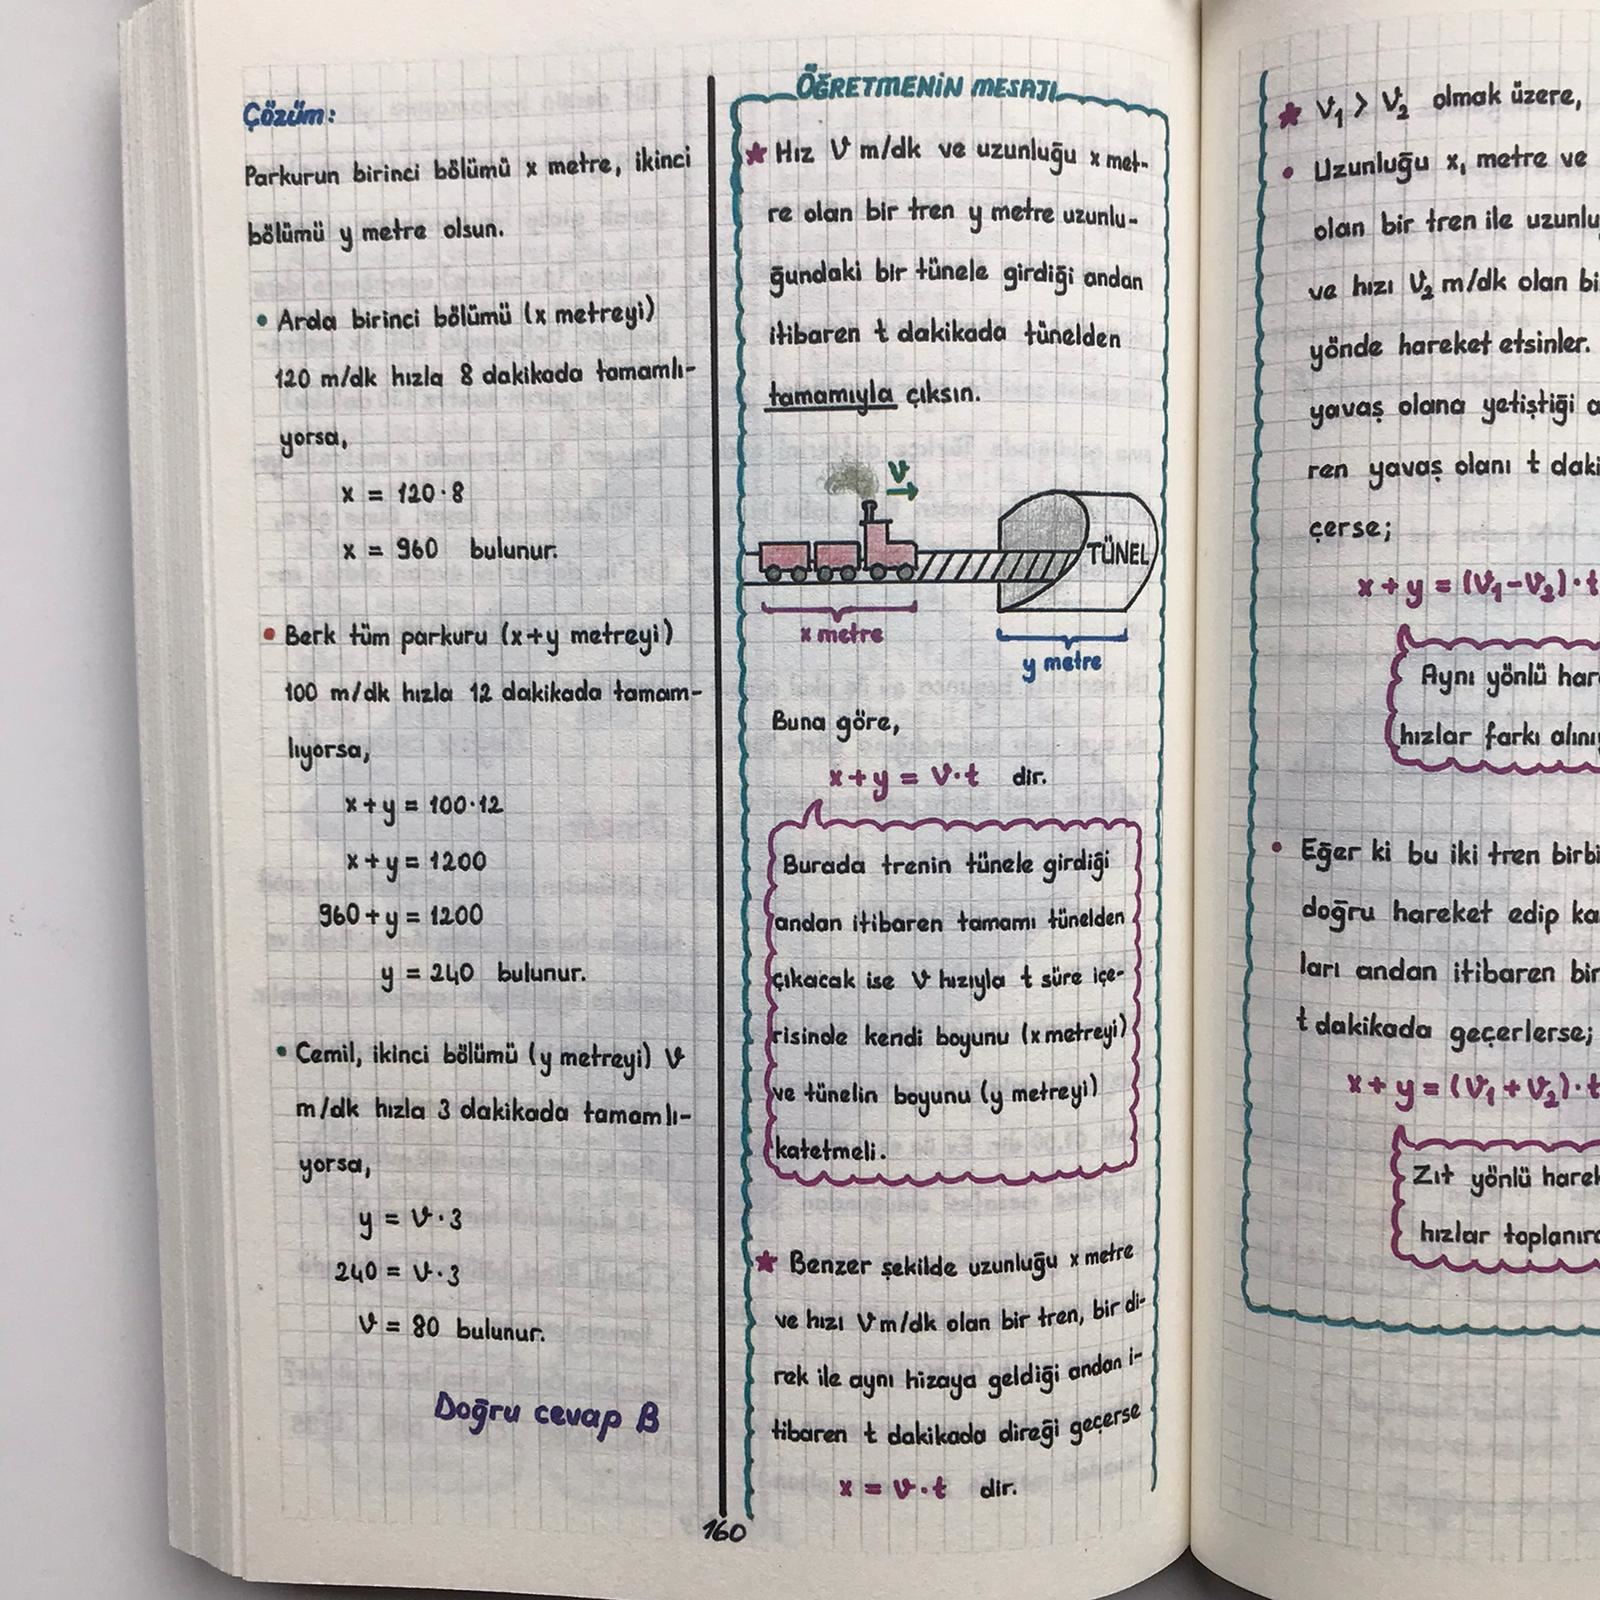 Çözüm:
Parkurun birinci bölümü x metre, ikinci
bölümü y metre olsun.
• Arda birinci bölümü (x metreyi)
120 m/dk hızla 8 dakikada tamamlı-
yorsa,
x = 120·8
x = 960 bulunur.
• Berk tüm parkuru (x+y metreyi)
100 m/dk hızla 12 dakikada tamam-
lıyorsa,
x+y = 100·12
x+y = 1200
960+y = 1200
y = 240 bulunur.
• Cemil, ikinci bölümü (y metreyi) V
m/dk hızla 3 dakikada tamamlı-
yorsa,
y = V·3
240 = V·3
V = 80 bulunur.
Doğru cevap B
ÖĞRETMENİN MESAJI
★ Hız V m/dk ve uzunluğu x met-
re olan bir tren y metre uzunlu-
ğundaki bir tünele girdiği andan
itibaren t dakikada tünelden
tamamıyla çıksın.
V
TÜNEL
x metre
y metre
Buna göre,
x+y = V·t dir.
Burada trenin tünele girdiği
andan itibaren tamamı tünelden
çıkacak ise V hızıyla t süre içe-
risinde kendi boyunu (x metreyi)
ve tünelin boyunu (y metreyi)
katetmeli.
★ Benzer şekilde uzunluğu x metre
ve hızı V m/dk olan bir tren, bir di-
rek ile aynı hizaya geldiği andan i-
tibaren t dakikada direği geçerse
x = V·t dir.
160
★ V₁ > V₂ olmak üzere,
• Uzunluğu x₁ metre ve
olan bir tren ile
ve hızı V₂ m/dk olan
yönde hareket etsinler.
yavaş olana yetiştiği
ren yavaş olanı t
çerse;
x+y = (V₁-V₂)·t
Aynı yönlü
hızlar farkı
• Eğer ki bu iki tren
doğru hareket edip
ları andan itibaren
t dakikada geçerlerse;
x+y = (V₁+V₂)·t
Zıt yönlü
hızlar